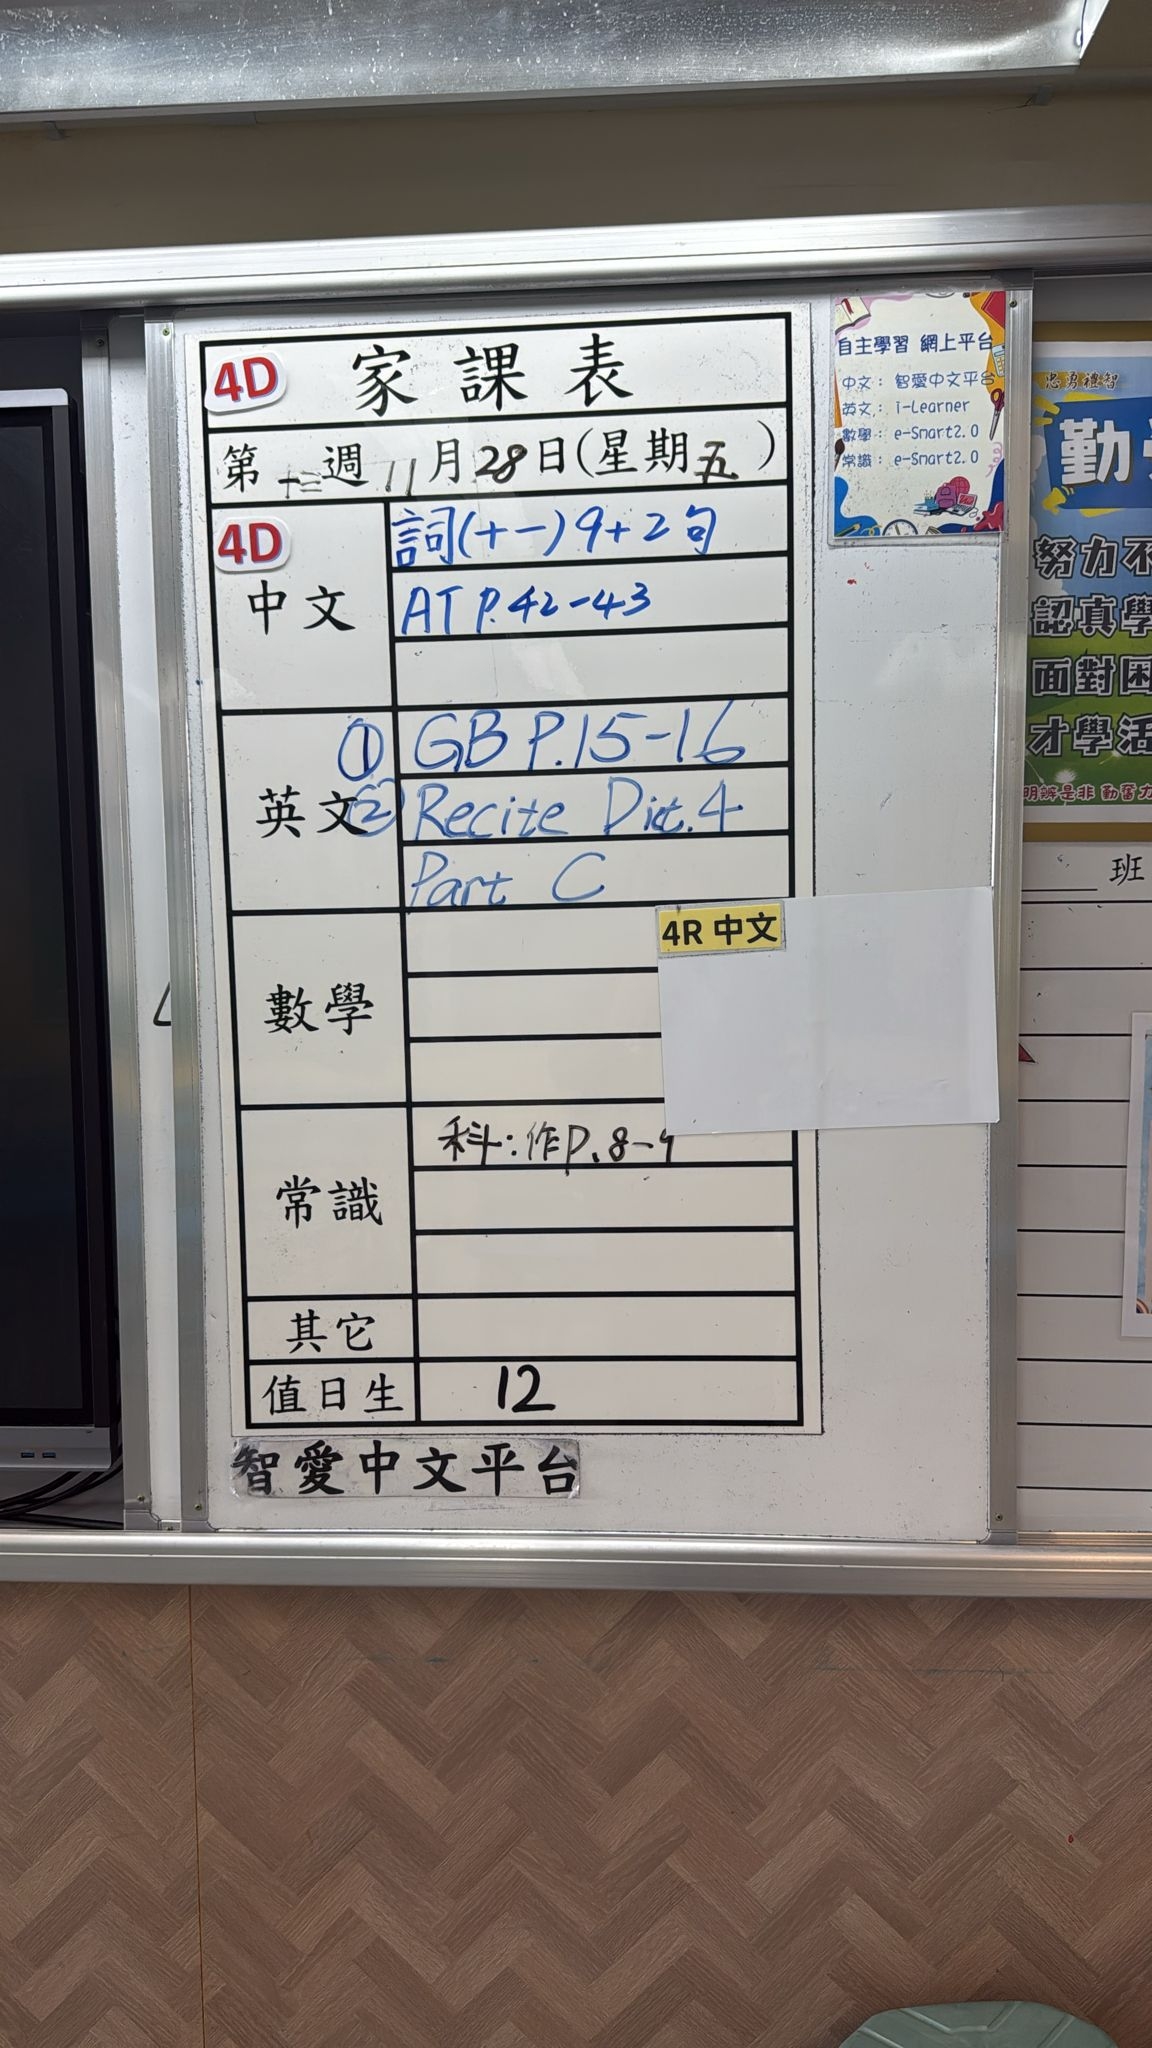 4D 家課表
第十三週 11月28日(星期五)
4D
中文
詞(十一)9+2句
AT P.42-43
英文
① GB P.15-16
② Recite Dict.4
Part C
數學
4R 中文
常識
科:作P.8-9
其它
值日生 12
智愛中文平台
自主學習 網上平台
中文: 智愛中文平台
英文: i-Learner
數學: e-Smart2.0
常識: e-Smart2.0
忠勇禮智
勤
努力不
認真學
面對困
才學活
明辨是非 勤奮力
班